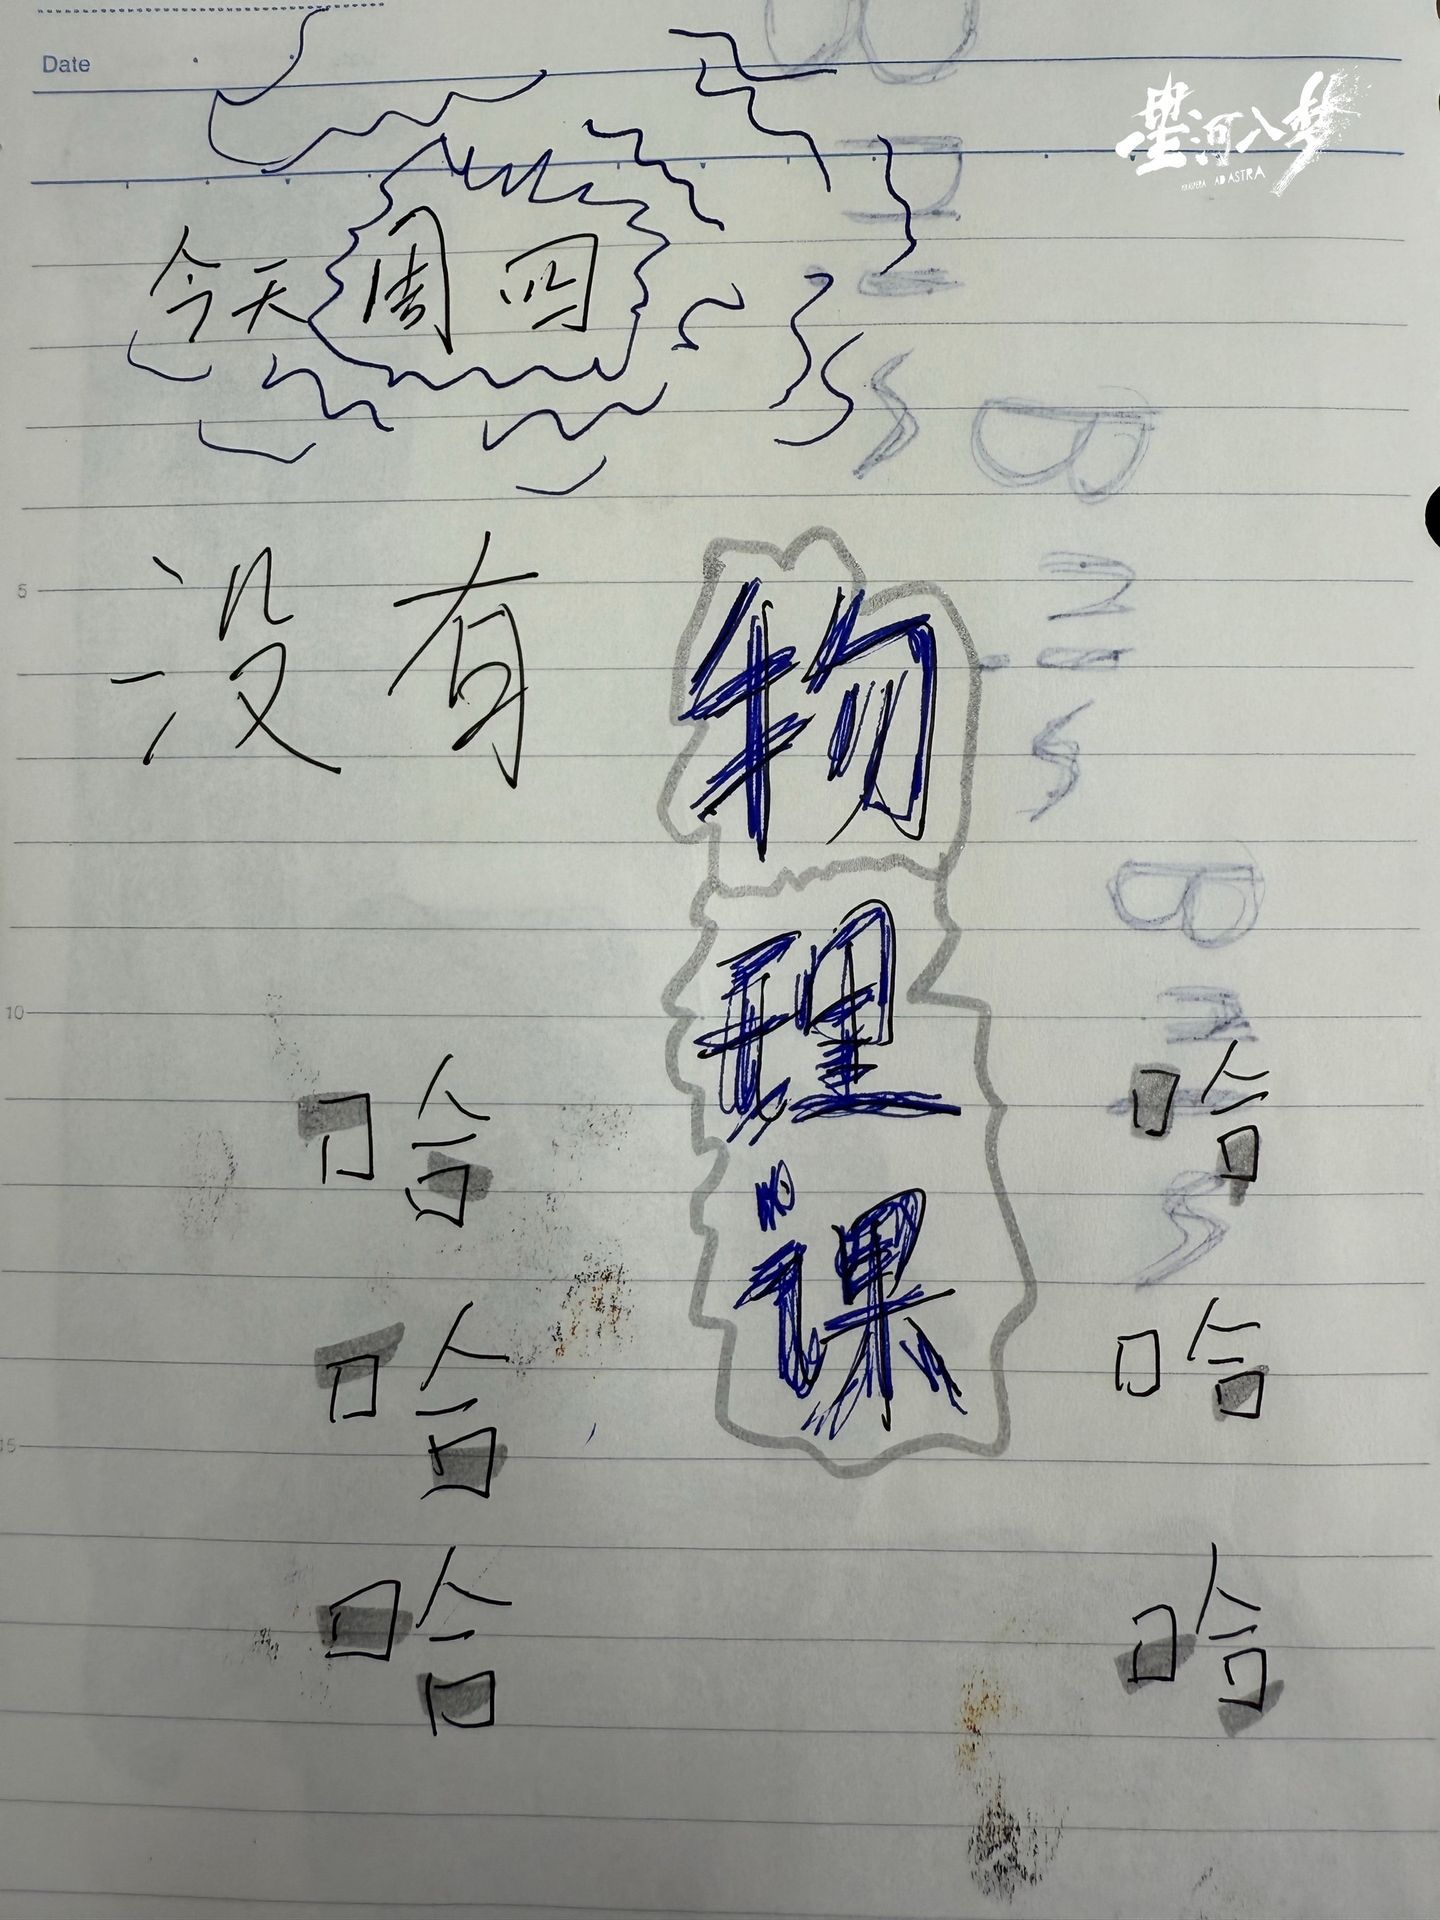 Date
星河入梦
PER ASPERA AD ASTRA
今天周四
没有物理课
5
10
15
哈 哈
哈 哈
哈 哈